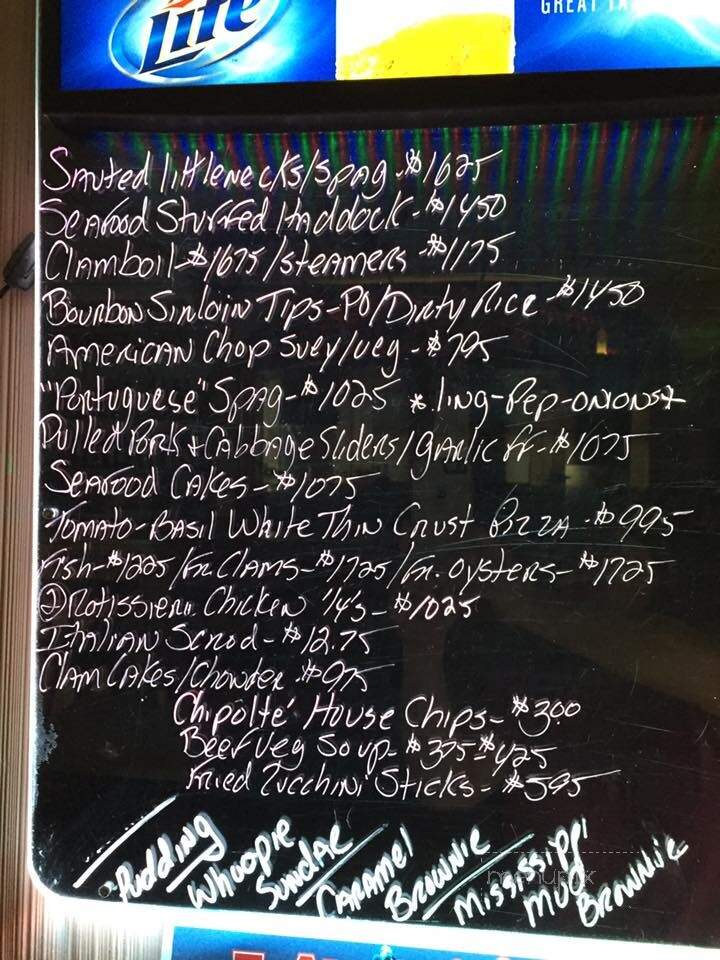 Lite
GREAT TA
Sauted littlenecks/spag-$1625
Seafood Stuffed Haddock-$1450
Clamboil-$1675/steamers-$1175
Bourbon Sirloin Tips-PO/Dirty Rice-$1450
American Chop Suey/veg-$795
"Portuguese" Spag-$1025 *.ling-Pep-onions*
Pulled Pork + Cabbage Sliders/garlic ff-$1075
Seafood Cakes-$1075
Tomato-Basil White Thin Crust Pizza-$995
Fish-$1225/Fr. Clams-$1725/Fr. oysters-$1725
② Rotisserie Chicken 1/4's-$1025
Italian Scrod-$12.75
Clam Cakes/Chowder-$975
Chipolté House Chips-$300
Beef Veg Soup-$375-$425
Fried Zucchini Sticks-$595
Pudding/Whoopie Sundae/Caramel Brownie/Mississippi Mud Brownie
menupix